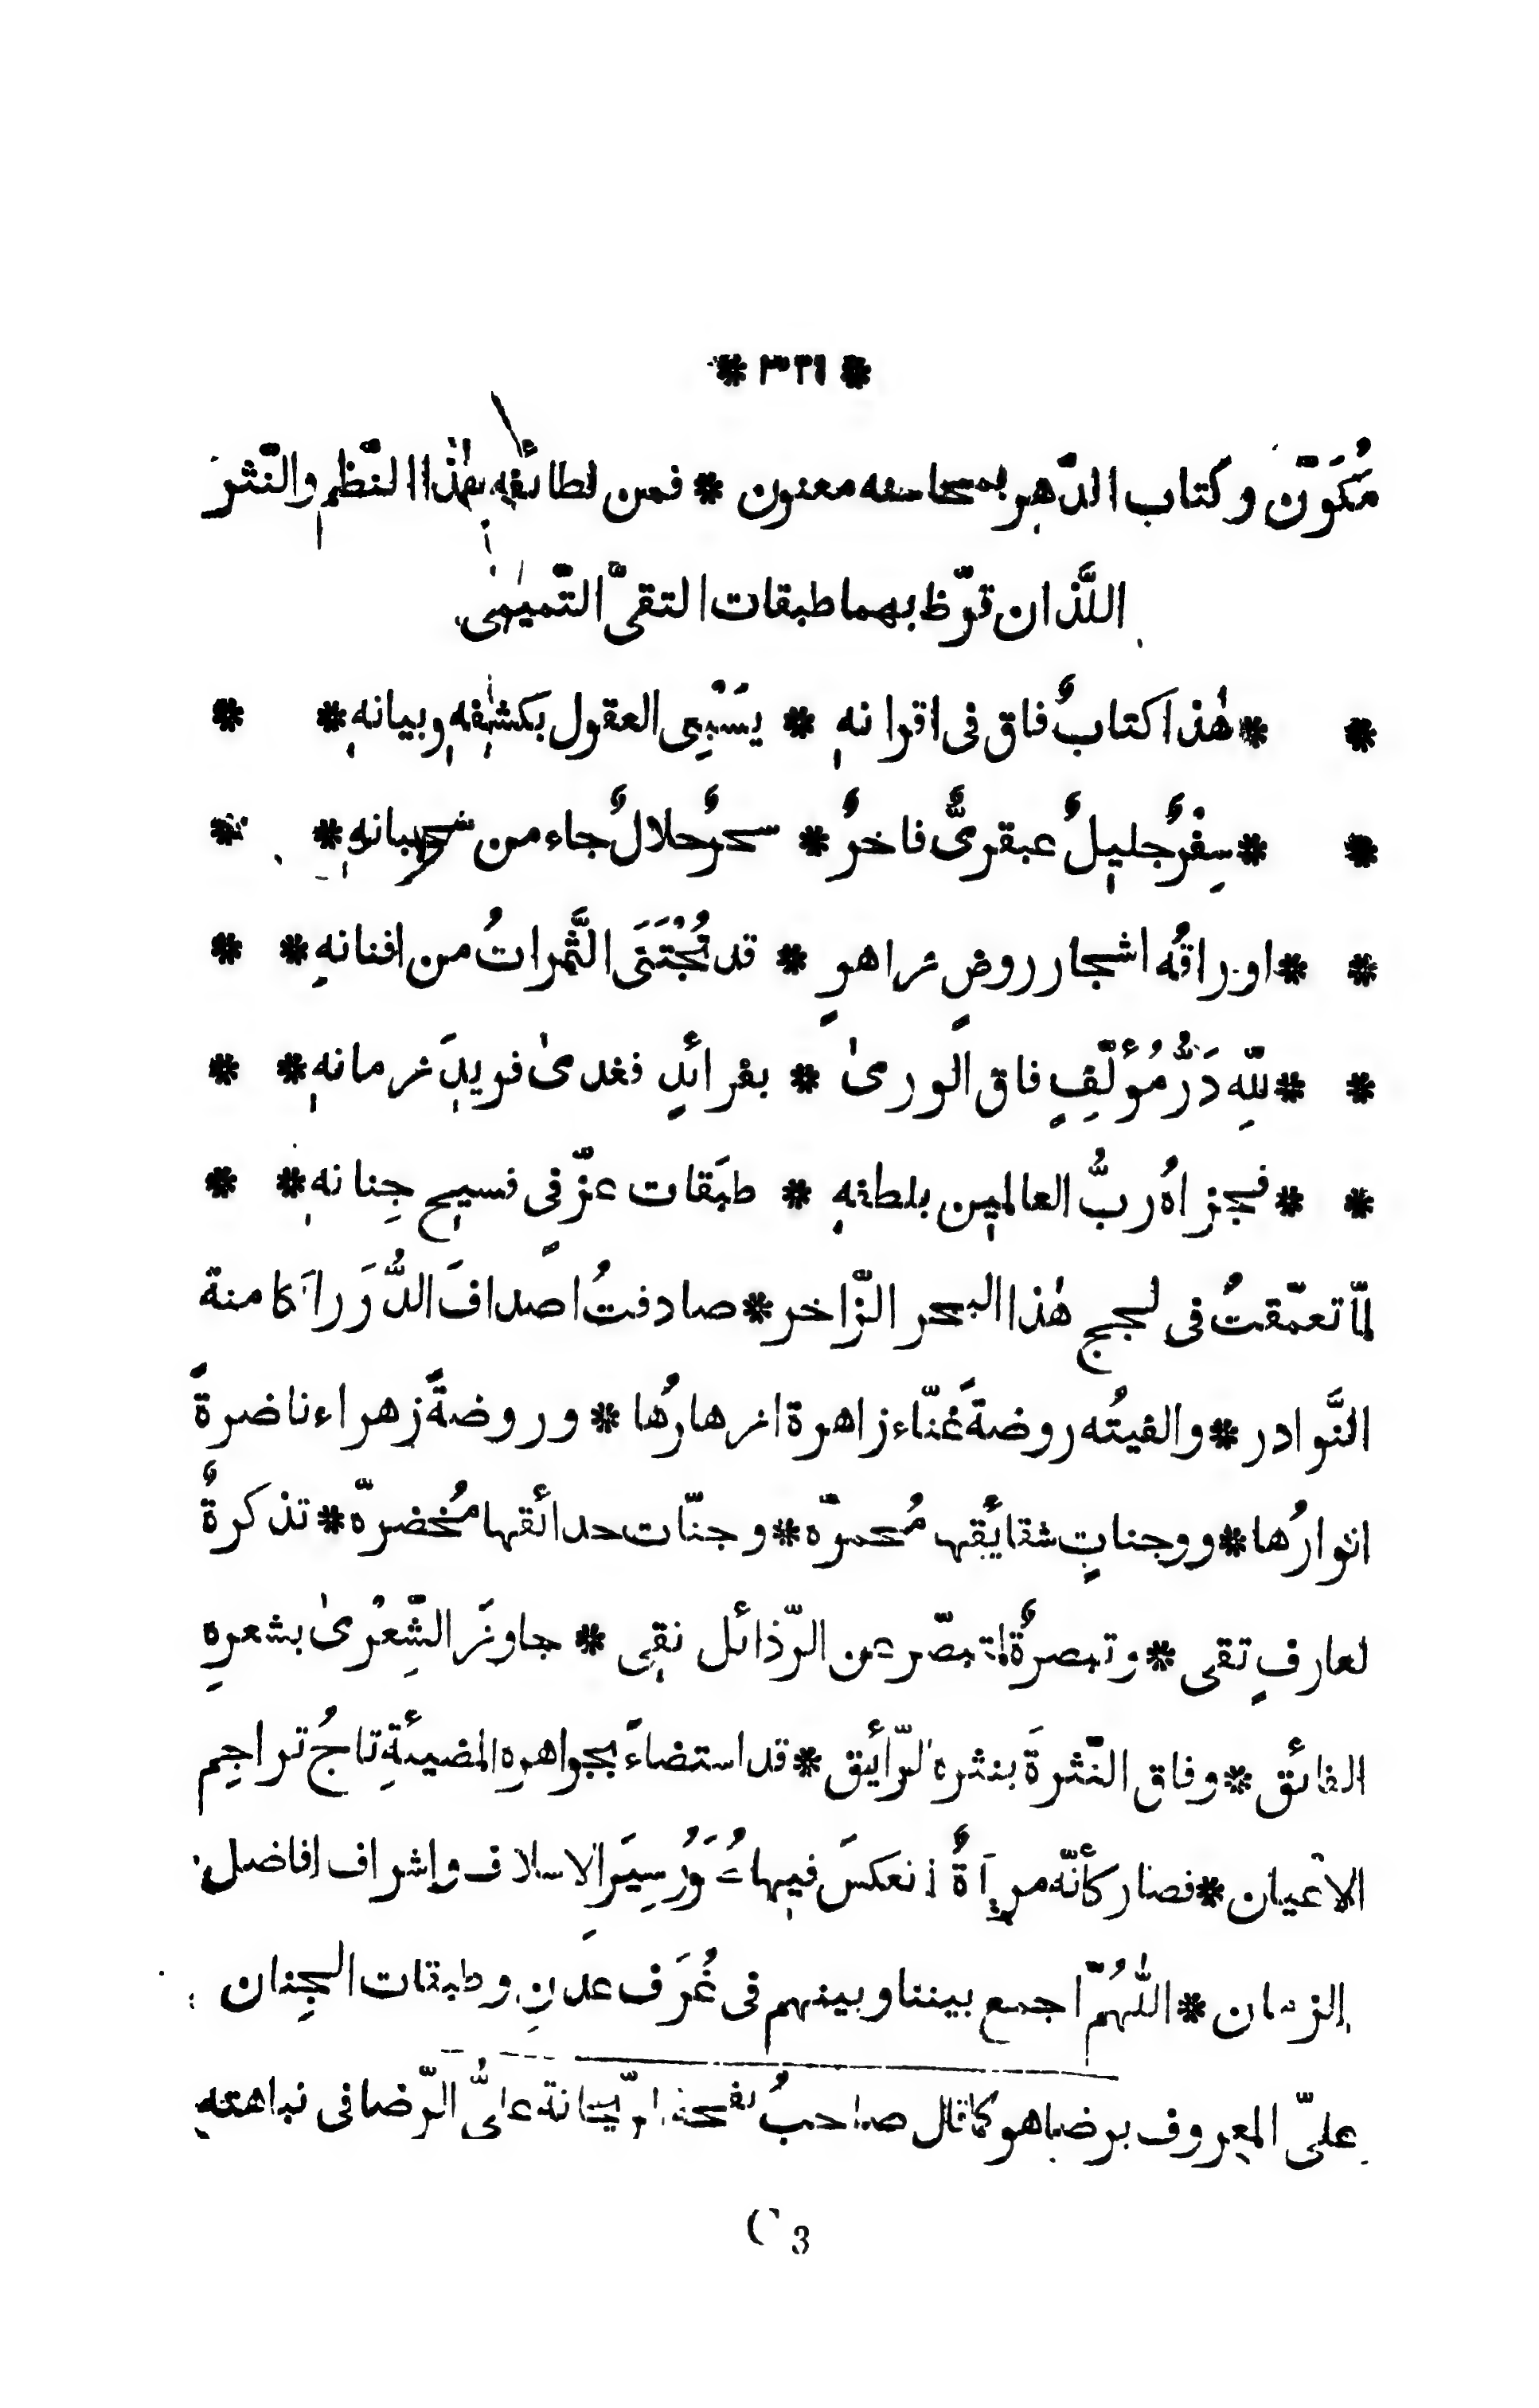 * ٣٢١ *
مُكَوَّن وكتاب الدّهر بمحاسنه معنون * فمن لطائفه هٰذا النّظم والنّثر
اللَّذان قرّظ بهما طبقات التقىّ التّميمى
* * هٰذا كتابٌ فاق فى اقرانهِ * يَسْبِى العقول بكشفِهِ وبيانهِ * *
* * سِفْرٌ جليلٌ عبقرىٌّ فاخرٌ * سحرٌ حلالٌ جاء من سحبانهِ * *
* * اوراقُه اشجار روضٍ زاهرٍ * قد تُجْتَنَى الثَّمراتُ من افنانهِ * *
* * للّهِ دَرُّ مُؤلّفٍ فاق الورىٰ * بفرائدٍ فغدىٰ فريدَ زمانهِ * *
* * فجزاهُ ربُّ العالمين بلطفهِ * طبَقات عزٍّ فى فسيح جِنانهِ * *
لمّا تعمّقتُ فى لجج هٰذا البحر الزّاخر * صادفتُ اصدافَ الدُّرَر كامنة
النَّوادر * والفيتُه روضةً غنّاء زاهرة ازهارُها * وروضةً زهراء ناضرةً
انوارُها * ووجناتٍ شقائقها مُحمرّة * وجنّات حدائقها مُخضرّة * تذكرةٌ
لعارفٍ تقى * وتبصرةٌ لمتبصّر عن الرّذائل نقى * جاوزَ الشِّعْرىٰ بشعرهِ
الفائق * وفاق النّثرةَ بنثره الرّائق * قد استضاءَ بجواهره المضيئةِ تاجُ تراجِم
الاعيان * فصار كأنّه مرآةٌ انعكسَ فيها صُوَرُ سِيَرِ الاسلاف واشراف افاضل
الزمان * اللّٰهُمّ اجمع بيننا وبينهم فى غُرَف عدنٍ وطبقات الجِنان
علىّ المعروف برضا هو كما قال صاحبُ نفحة الرّيحانة علىُّ الرّضا فى نباهته